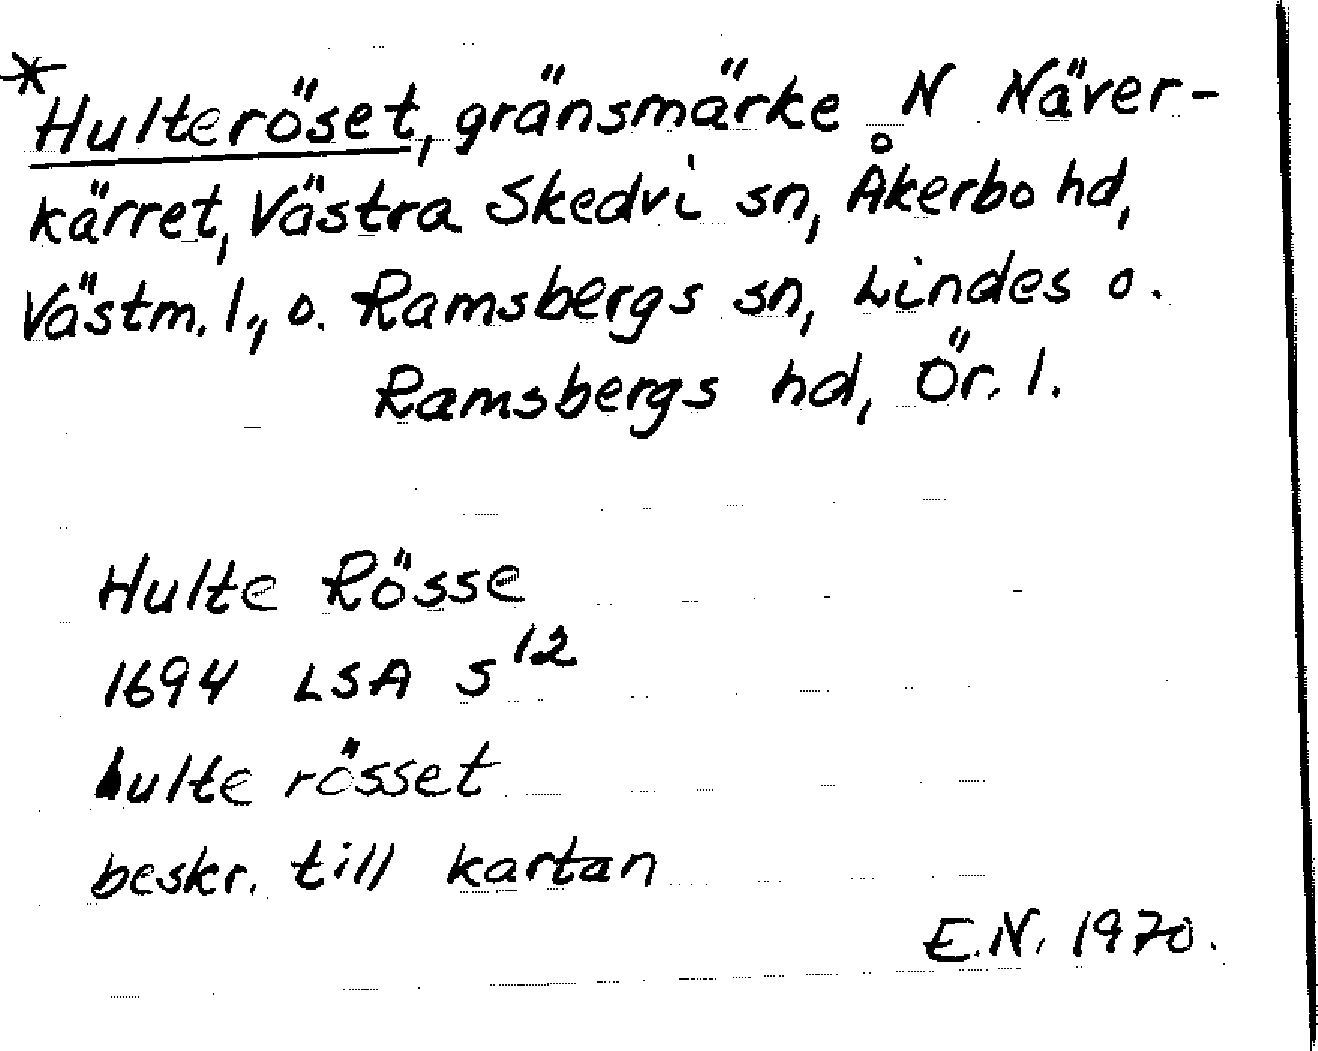 *Hulteröset, gränsmärke N Näver-
kärret, Västra Skedvi sn, Åkerbo hd,
Västm. l., o. Ramsbergs sn, Lindes o.
Ramsbergs hd, Ör. l.
Hulte Rösse
1694 LSA S¹²
hulte rösset
beskr. till kartan
E.N. 1970.